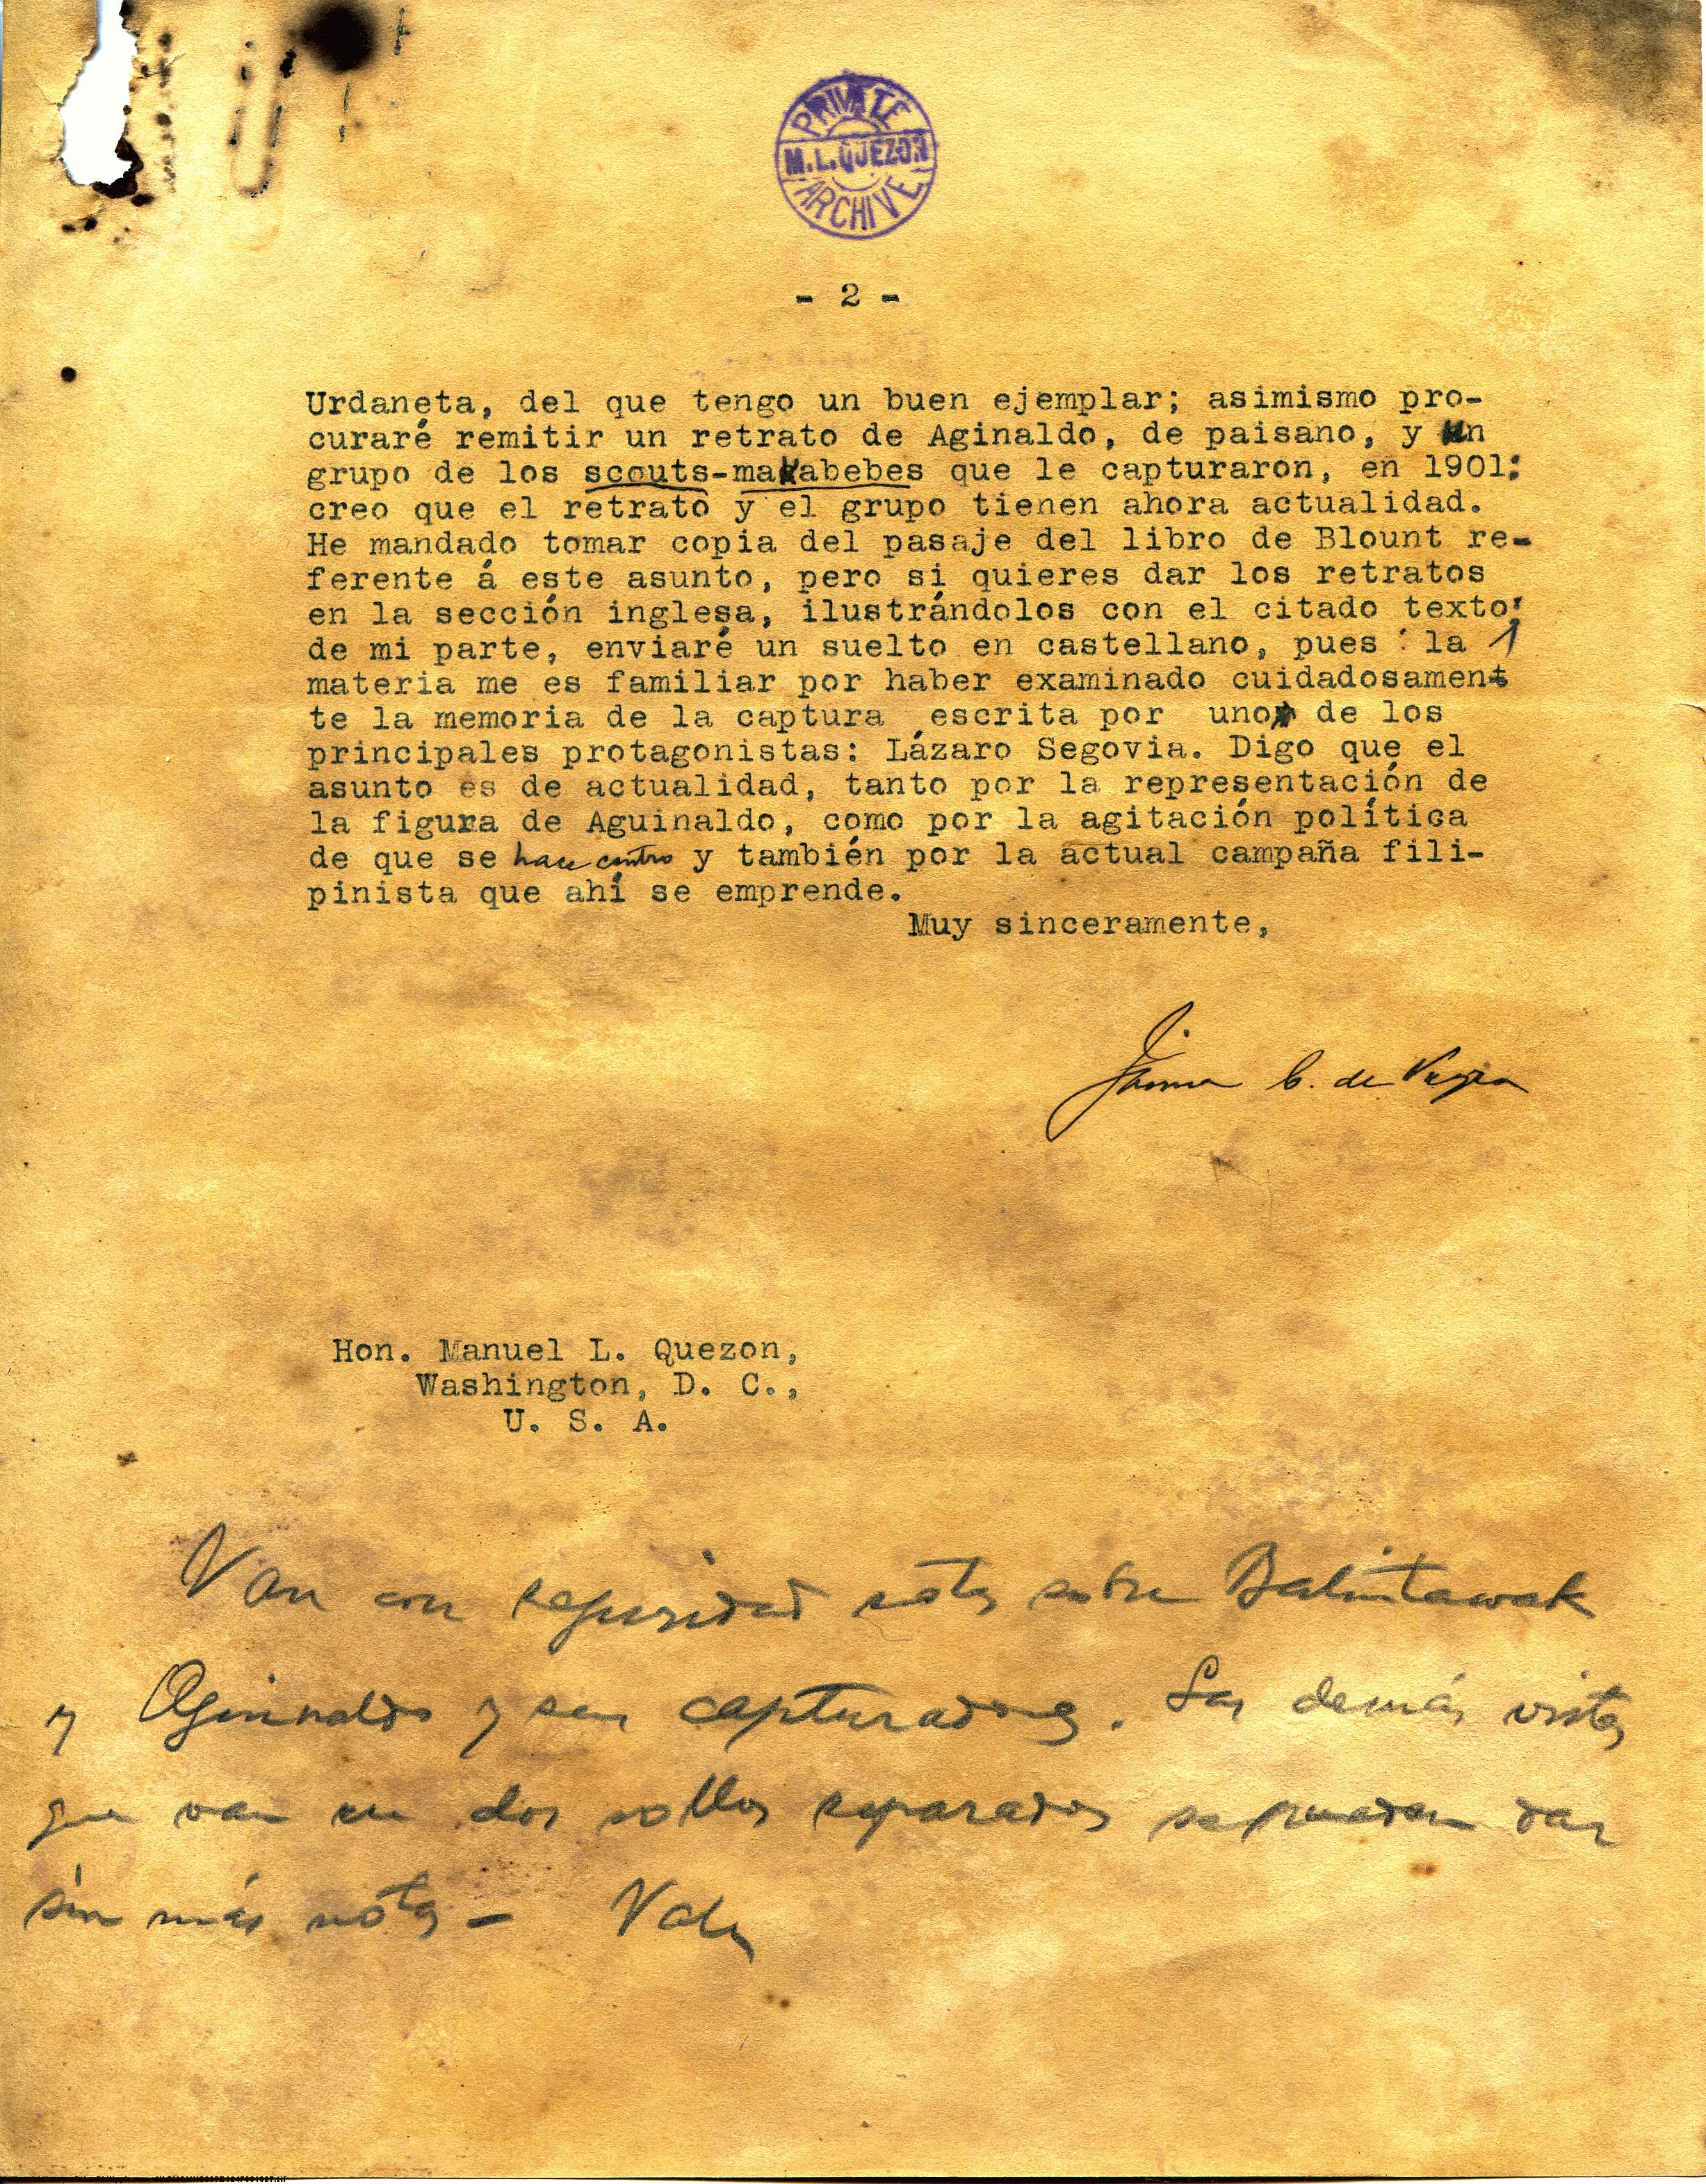 PRIVATE
M.L.QUEZON
ARCHIVE
- 2 -
Urdaneta, del que tengo un buen ejemplar; asimismo pro-
curaré remitir un retrato de Aginaldo, de paisano, y un
grupo de los scouts-makabebes que le capturaron, en 1901;
creo que el retrato y el grupo tienen ahora actualidad.
He mandado tomar copia del pasaje del libro de Blount re-
ferente á este asunto, pero si quieres dar los retratos
en la sección inglesa, ilustrándolos con el citado texto;
de mi parte, enviaré un suelto en castellano, pues la
materia me es familiar por haber examinado cuidadosament
te la memoria de la captura escrita por uno de los
principales protagonistas: Lázaro Segovia. Digo que el
asunto es de actualidad, tanto por la representación de
la figura de Aguinaldo, como por la agitación política
de que se hace centro y también por la actual campaña fili-
pinista que ahí se emprende.
Muy sinceramente,
Jaime C. de Veyra
Hon. Manuel L. Quezon,
Washington, D. C.,
U. S. A.
Van con seguridad notas sobre Balintawak
y Aginaldo y sus capturadores. Las demás vistas
que van en dos rollos separados se puedan dar
sin más notas - Vale